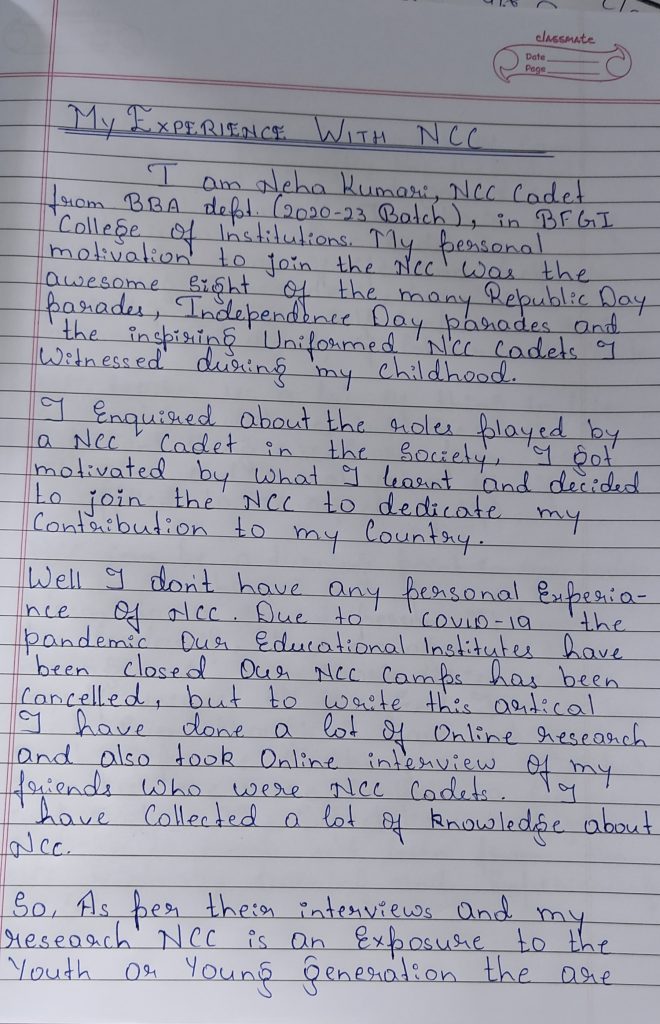 classmate
Date
Page
My Experience With NCC
I am Neha Kumari, NCC Cadet
from BBA deft. (2020-23 Batch), in BFGI
College of Institutions. My personal
motivation to join the NCC was the
awesome sight of the many Republic Day
parades, Independence Day parades and
the inspiring Uniformed NCC Cadets I
Witnessed during my childhood.
I Enquired about the roles played by
a NCC Cadet in the Society, I got
motivated by what I learnt and decided
to join the NCC to dedicate my
Contribution to my Country.
Well I don't have any personal Experia-
nce of NCC. Due to COVID-19 the
pandemic Our Educational Institutes have
been closed Our NCC Camps has been
Cancelled, but to write this artical
I have done a lot of Online research
and also took Online interview of my
friends Who were NCC Cadets. I
have Collected a lot of Knowledge about
NCC.
So, As per their interviews and my
research NCC is an Exposure to the
Youth or Young generation the are